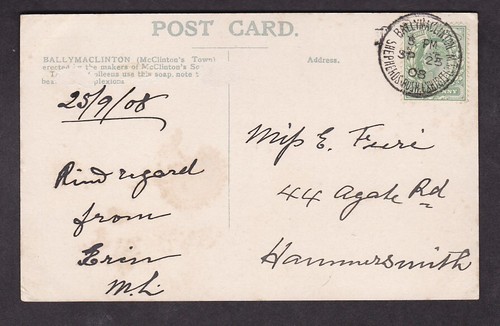 POST CARD.
BALLYMACLINTON (McClinton's Town)
erected by the makers of McClinton's So
The colleens use this soap, note t
beau complexions
Address.
BALLYMACLINTON
PM
SP 25
08
SHEPHERDS BUSH EXHIBITION
25/9/08
Kind regard
from
Erin
M.L.
Miss E.
44 Agate Rd
Hammersmith